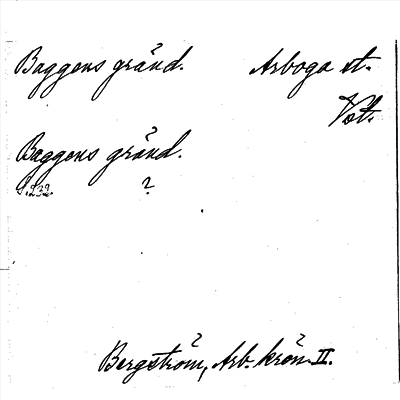 Baggens gränd. Arboga st.
Vst.
Baggens gränd.
S. 232. ?
Bergström, Arb. krön. II.